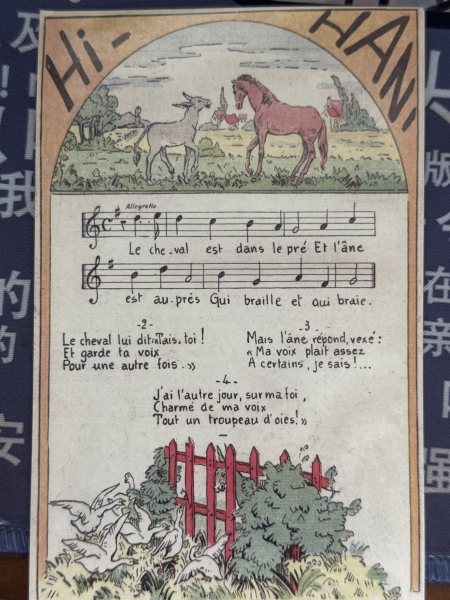 HI-HAN!
Allegretto
Le che-val est dans le pré Et l'âne
est au-près Qui braille et qui braie.
-2-
Le cheval lui dit:«Tais-toi!
Et garde ta voix
Pour une autre fois.»
-3-
Mais l'âne répond, vexé:
«Ma voix plaît assez
A certains, je sais!...
-4-
J'ai l'autre jour, sur ma foi,
Charmé de ma voix
Tout un troupeau d'oies!»
及
我
的
的
安
版
在
亲